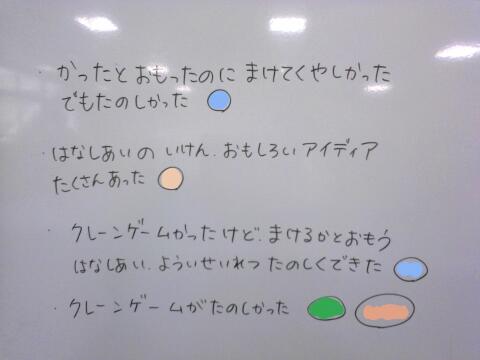 ・かったとおもったのに まけてくやしかった
でもたのしかった
・はなしあいの いけん.おもしろい アイディア
たくさんあった
・クレーンゲームかったけど.まけるかとおもう
はなしあい.よういせいれつ たのしくできた
・クレーンゲームがたのしかった